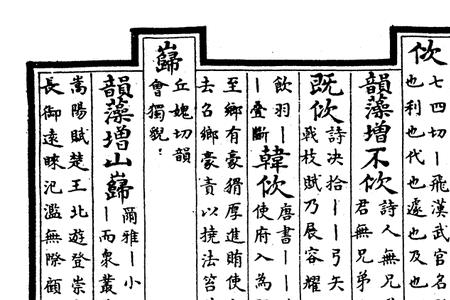 佽
七四切丨飛漢武官名
也利也代也遞也及也
韻藻增不佽
詩人無兄
君無兄弟
既佽
詩決拾丨丨弓矢
戰枝賦乃展容耀
飲羽丨
丨疊斷
韓佽
唐書丨丨
使府入為
至鄉有豪猾厚進賄使
去召鄉豪責以撓法笞
巋
丘媿切韻
會獨貌
韻藻增山巋
爾雅丨小
丨而衆叢
嵩陽賦楚王北遊登崇
長御遠睐氾濫無際顧